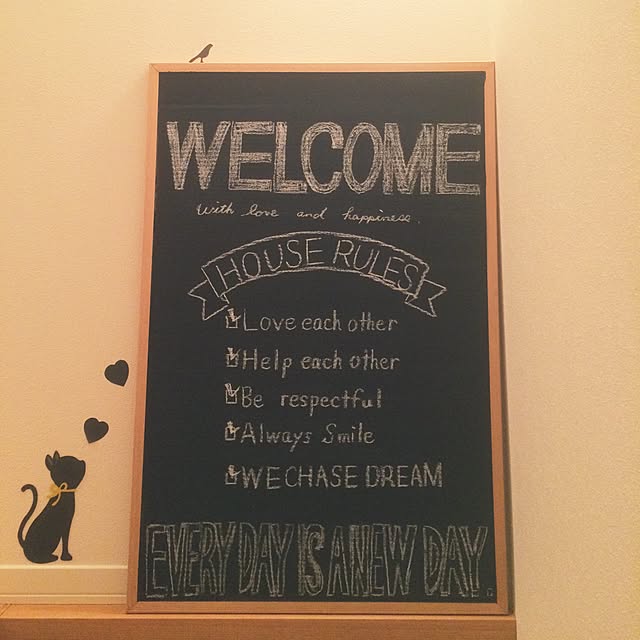 WELCOME
With love and happiness.
HOUSE RULES
Love each other
Help each other
Be respectful
Always Smile
WE CHASE DREAM
EVERY DAY IS A NEW DAY